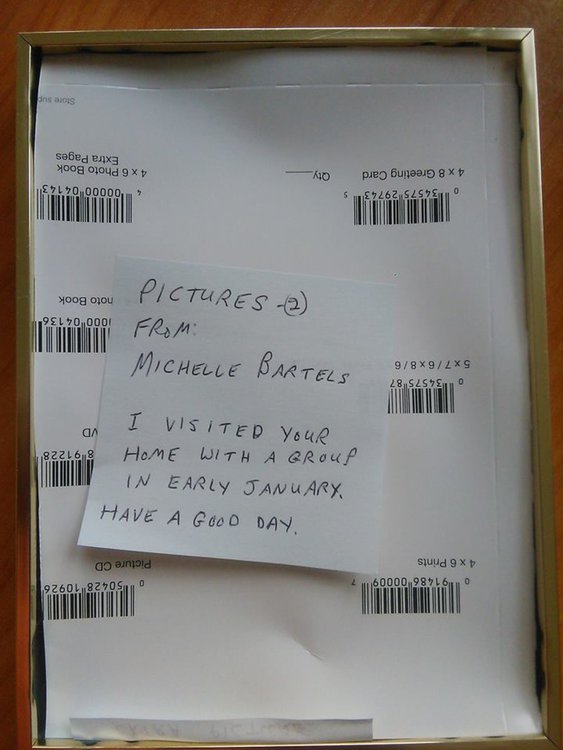 Store sup
4 x 8 Greeting Card
Qty
4 x 6 Photo Book
Extra Pages
0 34575 29743 5
4 00000 04143
oto Book
000 04136
PICTURES -(2)
FROM:
MICHELLE BARTELS
I VISITED YOUR
HOME WITH A GROUP
IN EARLY JANUARY.
HAVE A GOOD DAY.
5 x 7 / 6 x 8 / 6
0 34575 87
VD
8 91228
4 x 6 Prints
Picture CD
0 91486 00009 7
0 50428 10926